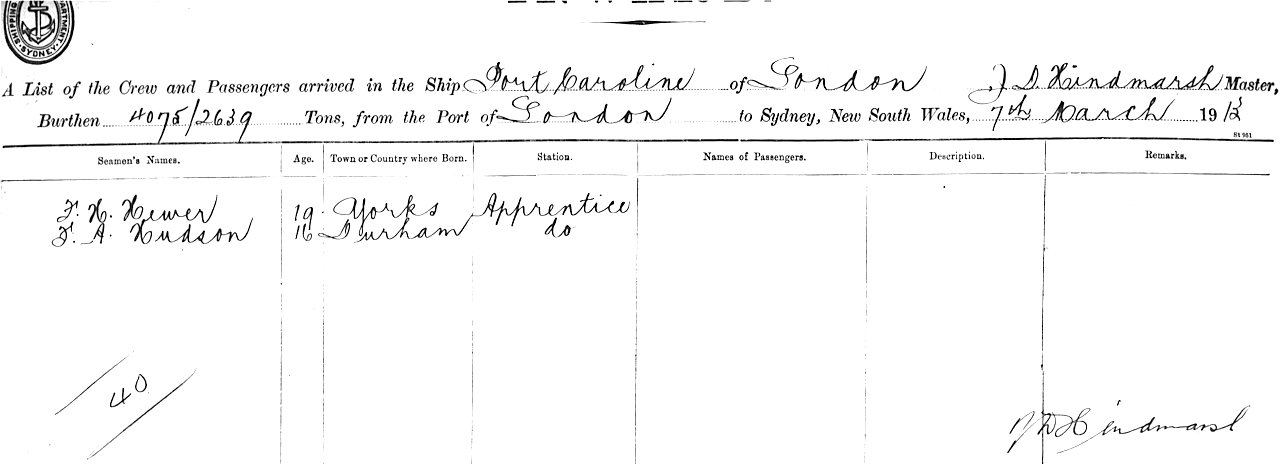 SHIPPING DEPARTMENT. SYDNEY.
A List of the Crew and Passengers arrived in the Ship Port Caroline of London J D Hindmarsh Master,
Burthen 4075/2639 Tons, from the Port of London to Sydney, New South Wales, 7th March 1913
St 961
Seamen's Names. Age. Town or Country where Born. Station. Names of Passengers. Description. Remarks.
F. H. Hewer 19 Yorks Apprentice
F. A. Hudson 16 Durham do
40
J D Hindmarsh